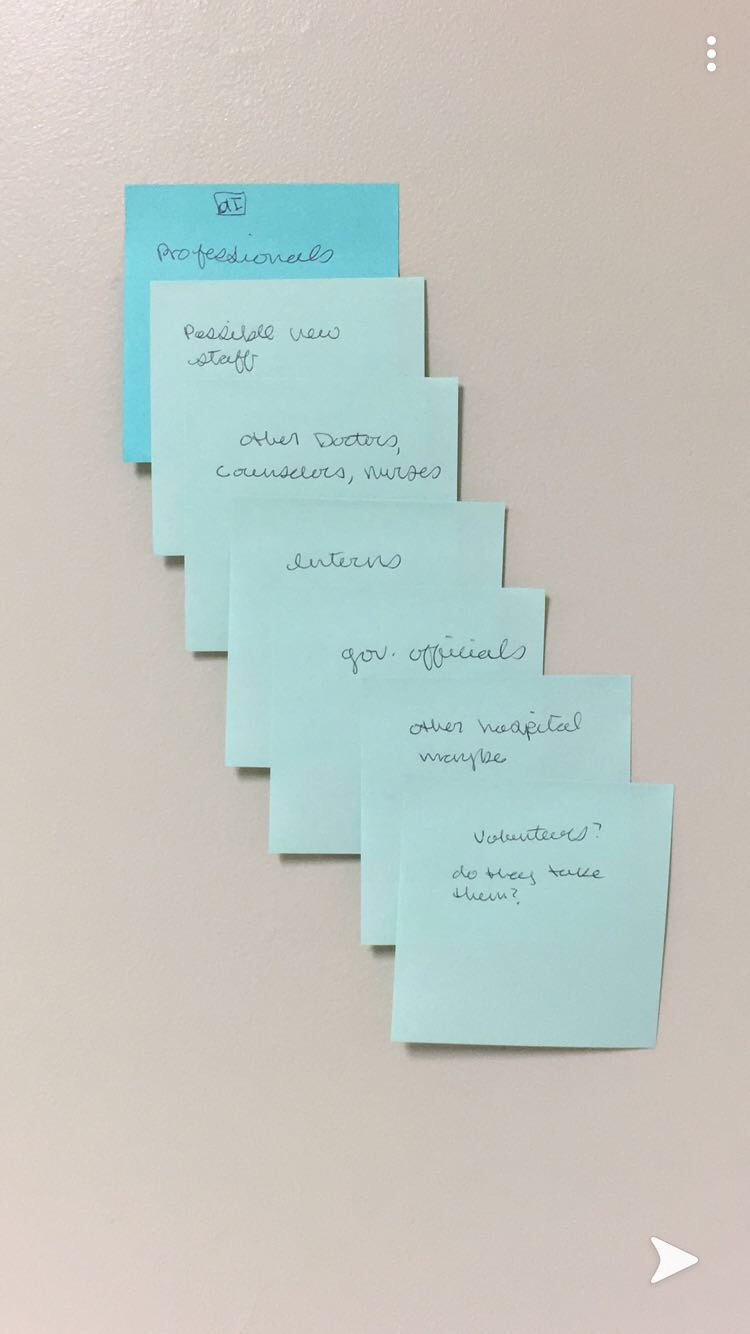 Professionals
Possible new
staff
other Doctors,
Counselors, nurses
Interns
gov. officials
other hospital
maybe
Volunteers?
do they take
them?